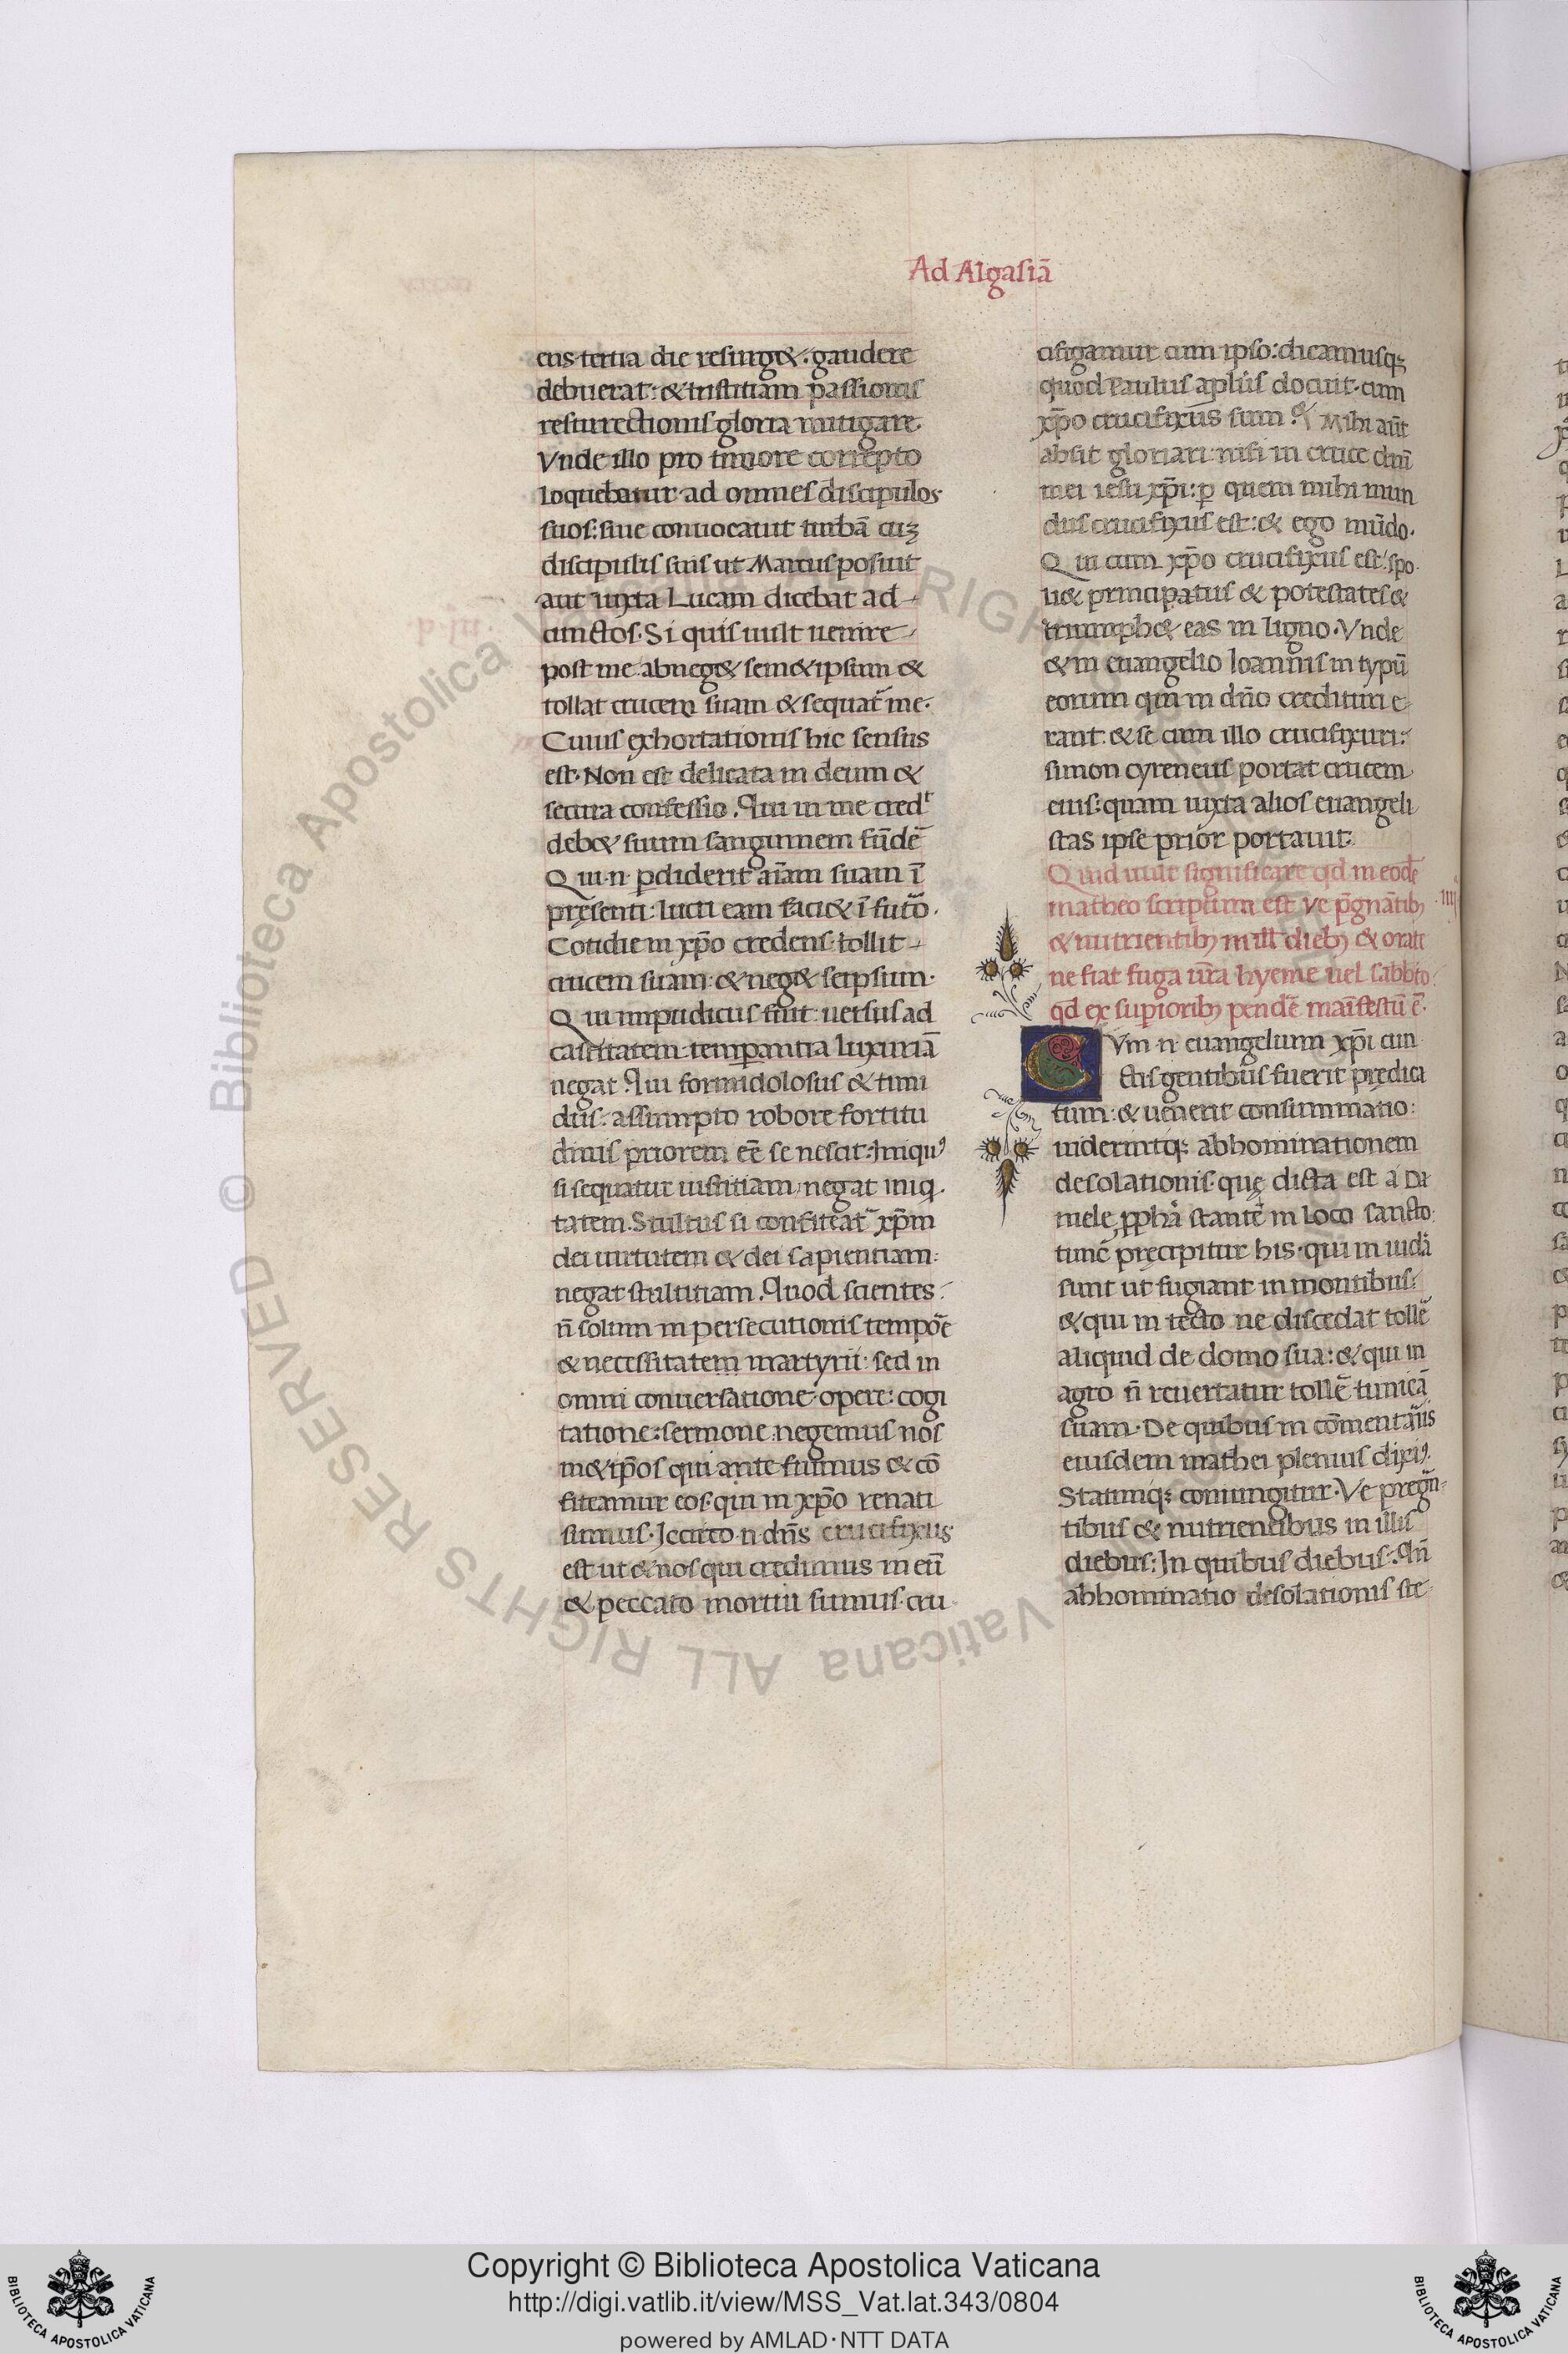 Ad Algasiā
ens tertia die resurg&: gaudere
debuerat: & tristitiam passionis
resurrectionis gloria mitigare.
Vnde illo pro timore correpto
loquebatur ad omnes discipulos
suos: siue conuocauit turbā cuʒ
discipulis suis ut Marcus posuit
aut iuxta Lucam dicebat ad
cunctos. Si quis uult uenire
post me abneg& sem&ipsum &
tollat crucem suam & sequat̃ me.
Cuius exhortationis hic sensus
est. Non est delicata in deum &
secura confessio. Qui in me credt
deb& suum sanguinem fūdē
Qui n̄ ꝑdiderit aīam suam ī
pręsenti: lucri eam faci& ī futō.
Cotidie in xp̄o credens tollit
crucem suam: & neg& seipsum.
Qui impudicus fuit: uersus ad
castitatem temꝑantia luxuriā
negat. Qui formidolosus & timi
dus: assumpto robore fortitu
dinis priorem eē se nescit. Iniquꝰ
si sequatur iustitiam, negat iniq
tatem. Stultus si confiteat̃ xp̄m
dei uirtutem & dei sapientiam:
negat stultitiam. Quod scientes
n̄ solum in persecutionis tempōe
& necessitatem martyrii: sed in
omni conuersatione opere: cogi
tatione: sermone: negemus nos
m&ip̄os qui ante fuimus & cō
fiteamur eos qui in xp̄o renati
sumus. Iccirco n̄ dn̄s crucifixus
est ut & nos qui credimus in eū
& peccato mortui sumus cru
cifigamur cum ipso: dicamusqꝫ
quod Paulus apl̄us docuit. cum
xp̄o crucifixus sum. & Mihi aūt
absit gloriari nisi in cruce dn̄i
mei iesu xp̄i: ꝑ quem mihi mun
dus crucifixus est: & ego mūdo.
Qui cum xp̄o crucifixus est: spo
li& principatus & potestates &
triumph& eas in ligno. Vnde
& in euangelio Ioannis in typū
eorum qui in dn̄o credituri e
rant: & se cum illo crucifixuri:
simon cyreneus portat crucem
eius: quam iuxta alios euangeli
stas ipse prior portauit.
Quid uult significare qd in eodē
matheo scriptum est ve p̄gnātibꝫ
.iiij.
& nutrientibꝫ in ill̄ diebꝫ & orate
ne fiat fuga ur̄a hyeme uel sabbto
qd ex supioribꝫ pendē manīfestū ē.
CVm n̄ euangelium xp̄i cun
ctis gentibus fuerit prędica
tum: & uenerit consummatio:
uiderintqꝫ abhominationem
desolationis: quę dicta est a Da
niele ꝓphā stantē in loco sancto:
tunc̄ pręcipitur his qui in iudā
sunt ut fugiant in montibus:
& qui in tecto ne discedat tollē
aliquid de domo sua: & qui in
agro n̄ reuertatur tollē tunicā
suam. De quibus in cōmentariis
eiusdem mathei plenius diximꝰ.
Statimqꝫ coniungitur. Ve pregn̄
tibus & nutrientibus in illis
diebus: In quibus diebus: Qn̄
abhominatio desolationis ste
Copyright © Biblioteca Apostolica Vaticana
http://digi.vatlib.it/view/MSS_Vat.lat.343/0804
powered by AMLAD·NTT DATA
BIBLIOTECA APOSTOLICA VATICANA
BIBLIOTECA APOSTOLICA VATICANA
© Biblioteca Apostolica Vaticana ALL RIGHTS RESERVED